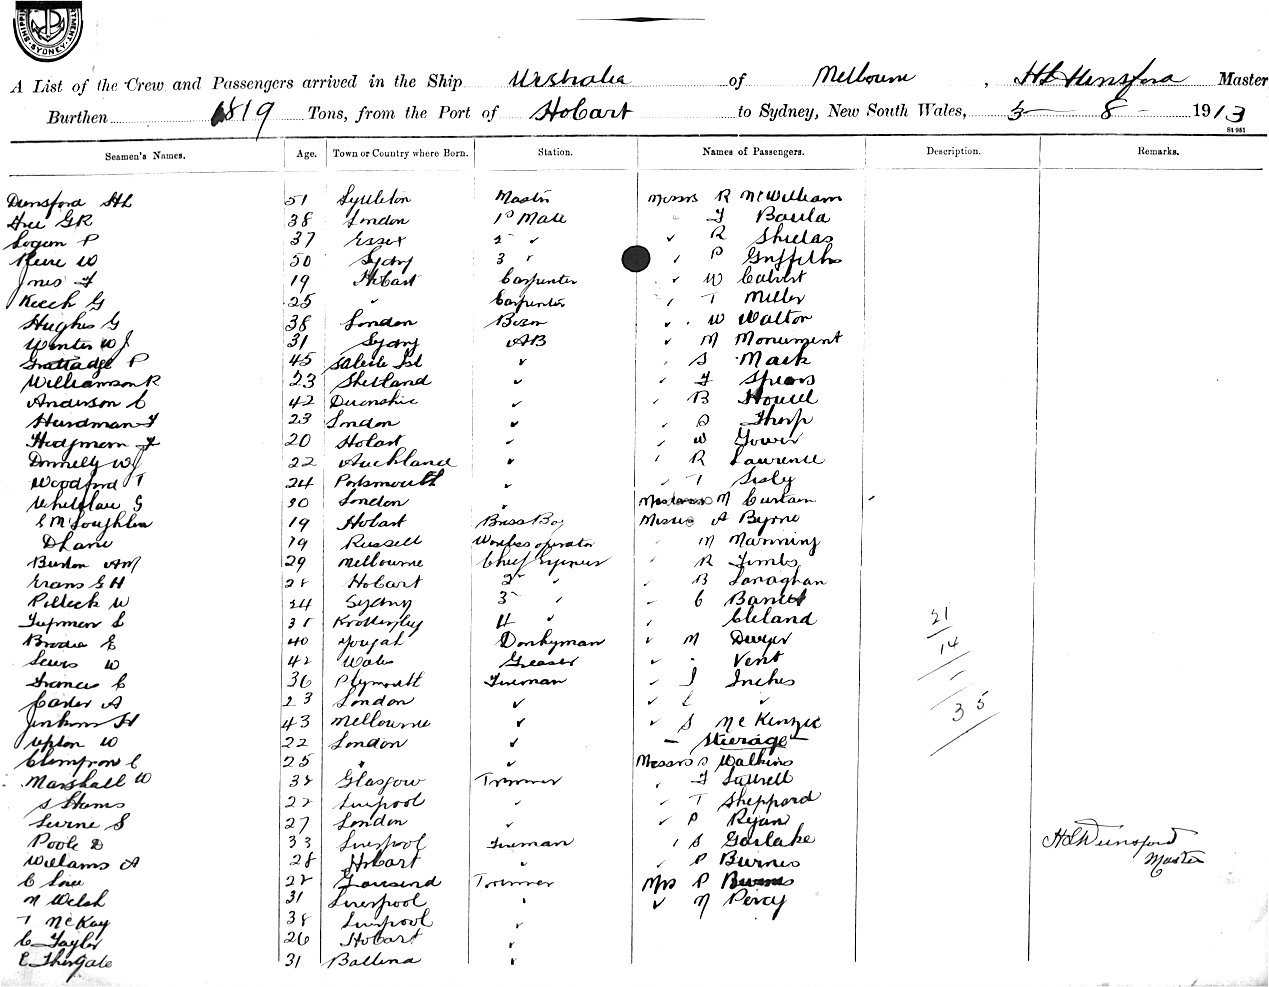 SHIPPING DEPARTMENT SYDNEY
A List of the Crew and Passengers arrived in the Ship Westralia of Melbourne, H L Dunsford Master
Burthen 1819 Tons, from the Port of Hobart to Sydney, New South Wales, 5 - 8 - 1913
St 951
Seamen's Names. Age. Town or Country where Born. Station. Names of Passengers. Description. Remarks.
Dunsford HL 51 Lyttleton Master Messrs R McWilliam
GR 38 London 1st Mate " F Baula
Logan P 37 Essex 2 " " R Shields
W 50 Sydny 3 " " P Griffiths
Jones F 19 Hobart Carpenter " W Calvert
Keech G 25 " Carpenter " T Miller
Hughes G 38 London Bosn " W Walton
Winter WJ 31 Sydny AB " M Monument
P 45 Isl " " S Mack
Williamson R 23 Shetland " " F Spears
Anderson C 42 Devonshire " " B Housel
Hurdman F 23 London " " S Thorp
F 20 Hobart " " W Gower
Donnelly WJ 22 Auckland " " R Laurence
Woodford T 24 Portsmouth " " T Sisly
G 30 London " M Curtain
E McLoughlin 19 Hobart Brass Boy Misses A Byrne
19 Russell Wireless operator " M Manning
Burton AM 29 Melbourne Chief Engineer " R Timbs
Evans GH 28 Hobart 2nd " " B Lanaghan
W 24 Sydny 3 " " C Barnett
E 38 4 " " Cleland
Brodie E 40 Youghal Donkyman " M Dwyer
Lewis W 42 Wales Greaser " " Vent
Francis C 36 Plymouth Fireman " J Inches
Carter A 23 London " " E "
Jenkins H 43 Melbourne " " S McKenzie
Upton W 22 London " - Steerage -
C 25 " Messrs S Watkins
Marshall W 38 Glasgow Trimmer " F
S 22 Liverpool " " T Sheppard
S 27 London " " P Ryan
Poole D 33 Liverpool Fireman " S Garlake
Williams A 28 Hobart " " P Burnes
C Love 22 Townsend Trimmer Mrs P Burnes
M Welsh 31 Liverpool " " M Percy
T McKay 38 Liverpool "
C Taylor 26 Hobart "
E Thirgate 31 Ballina "
21
14
35
HL Dunsford
Master